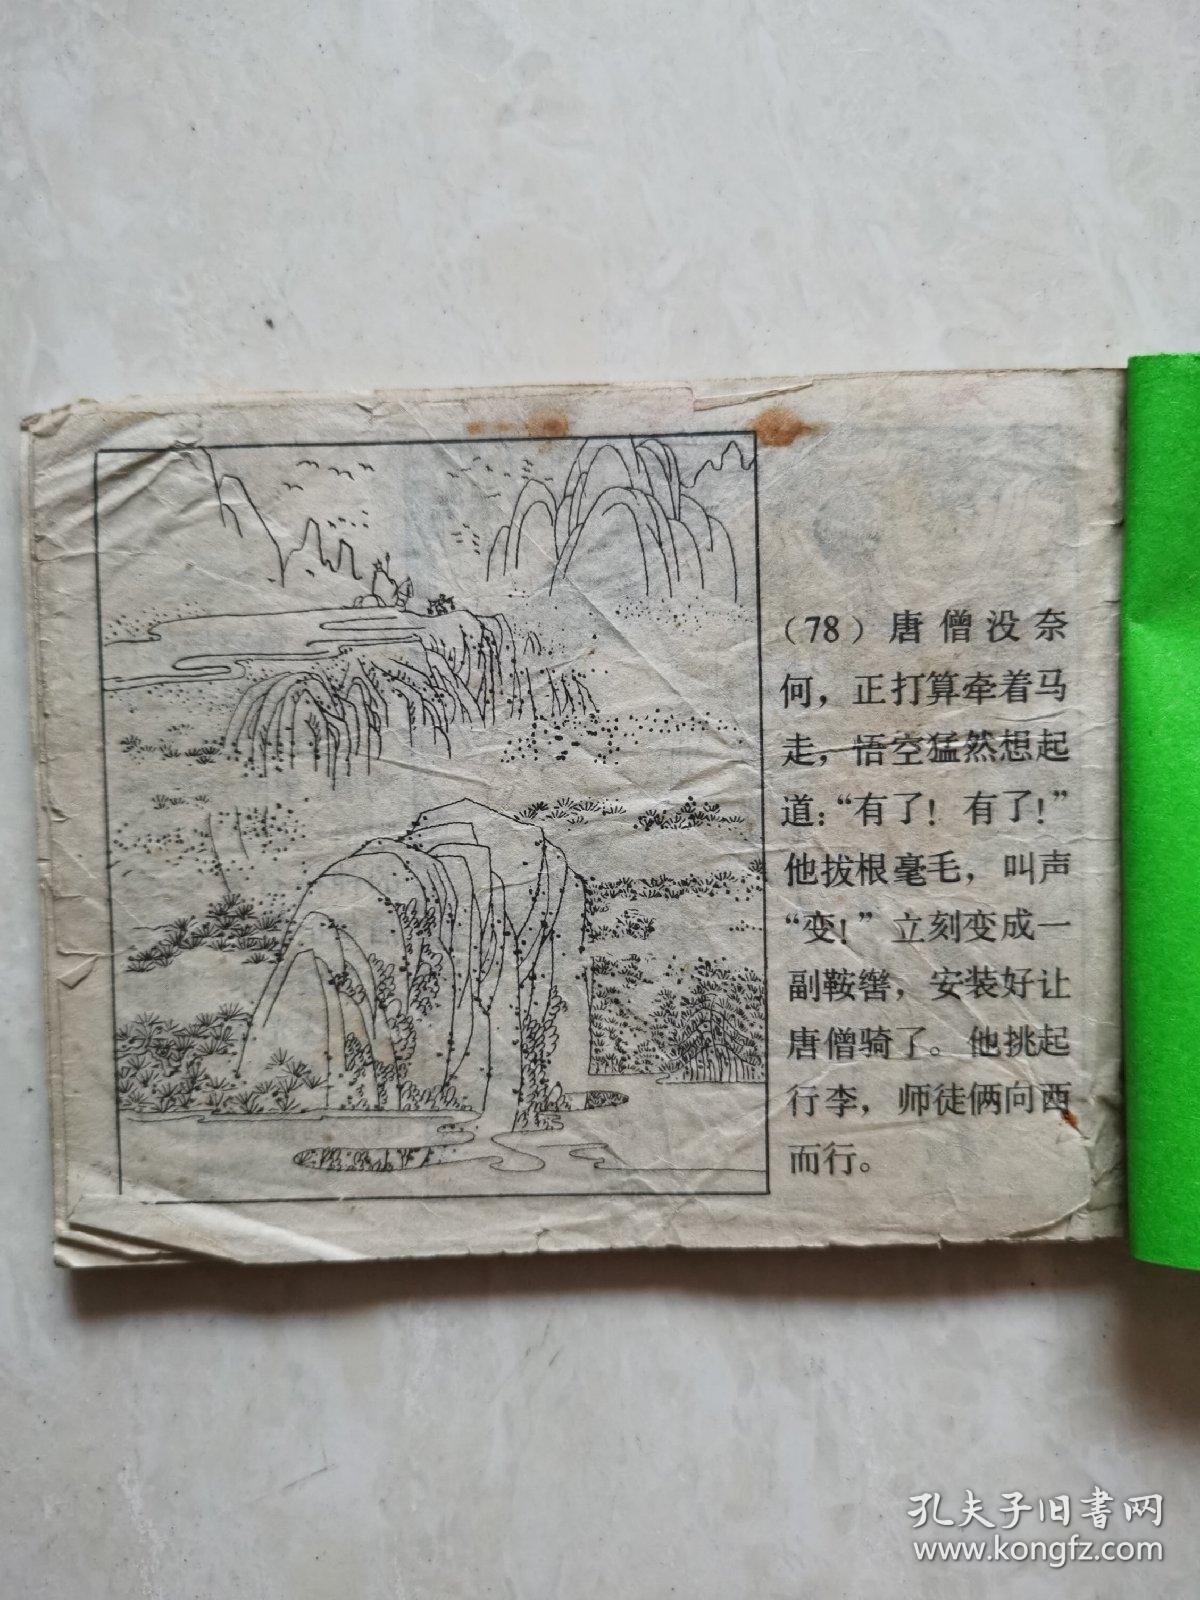 （78）唐僧没奈
何，正打算牵着马
走，悟空猛然想起
道：“有了！有了！”
他拔根毫毛，叫声
“变！”立刻变成一
副鞍辔，安装好让
唐僧骑了。他挑起
行李，师徒俩向西
而行。
孔夫子旧书网
www.kongfz.com